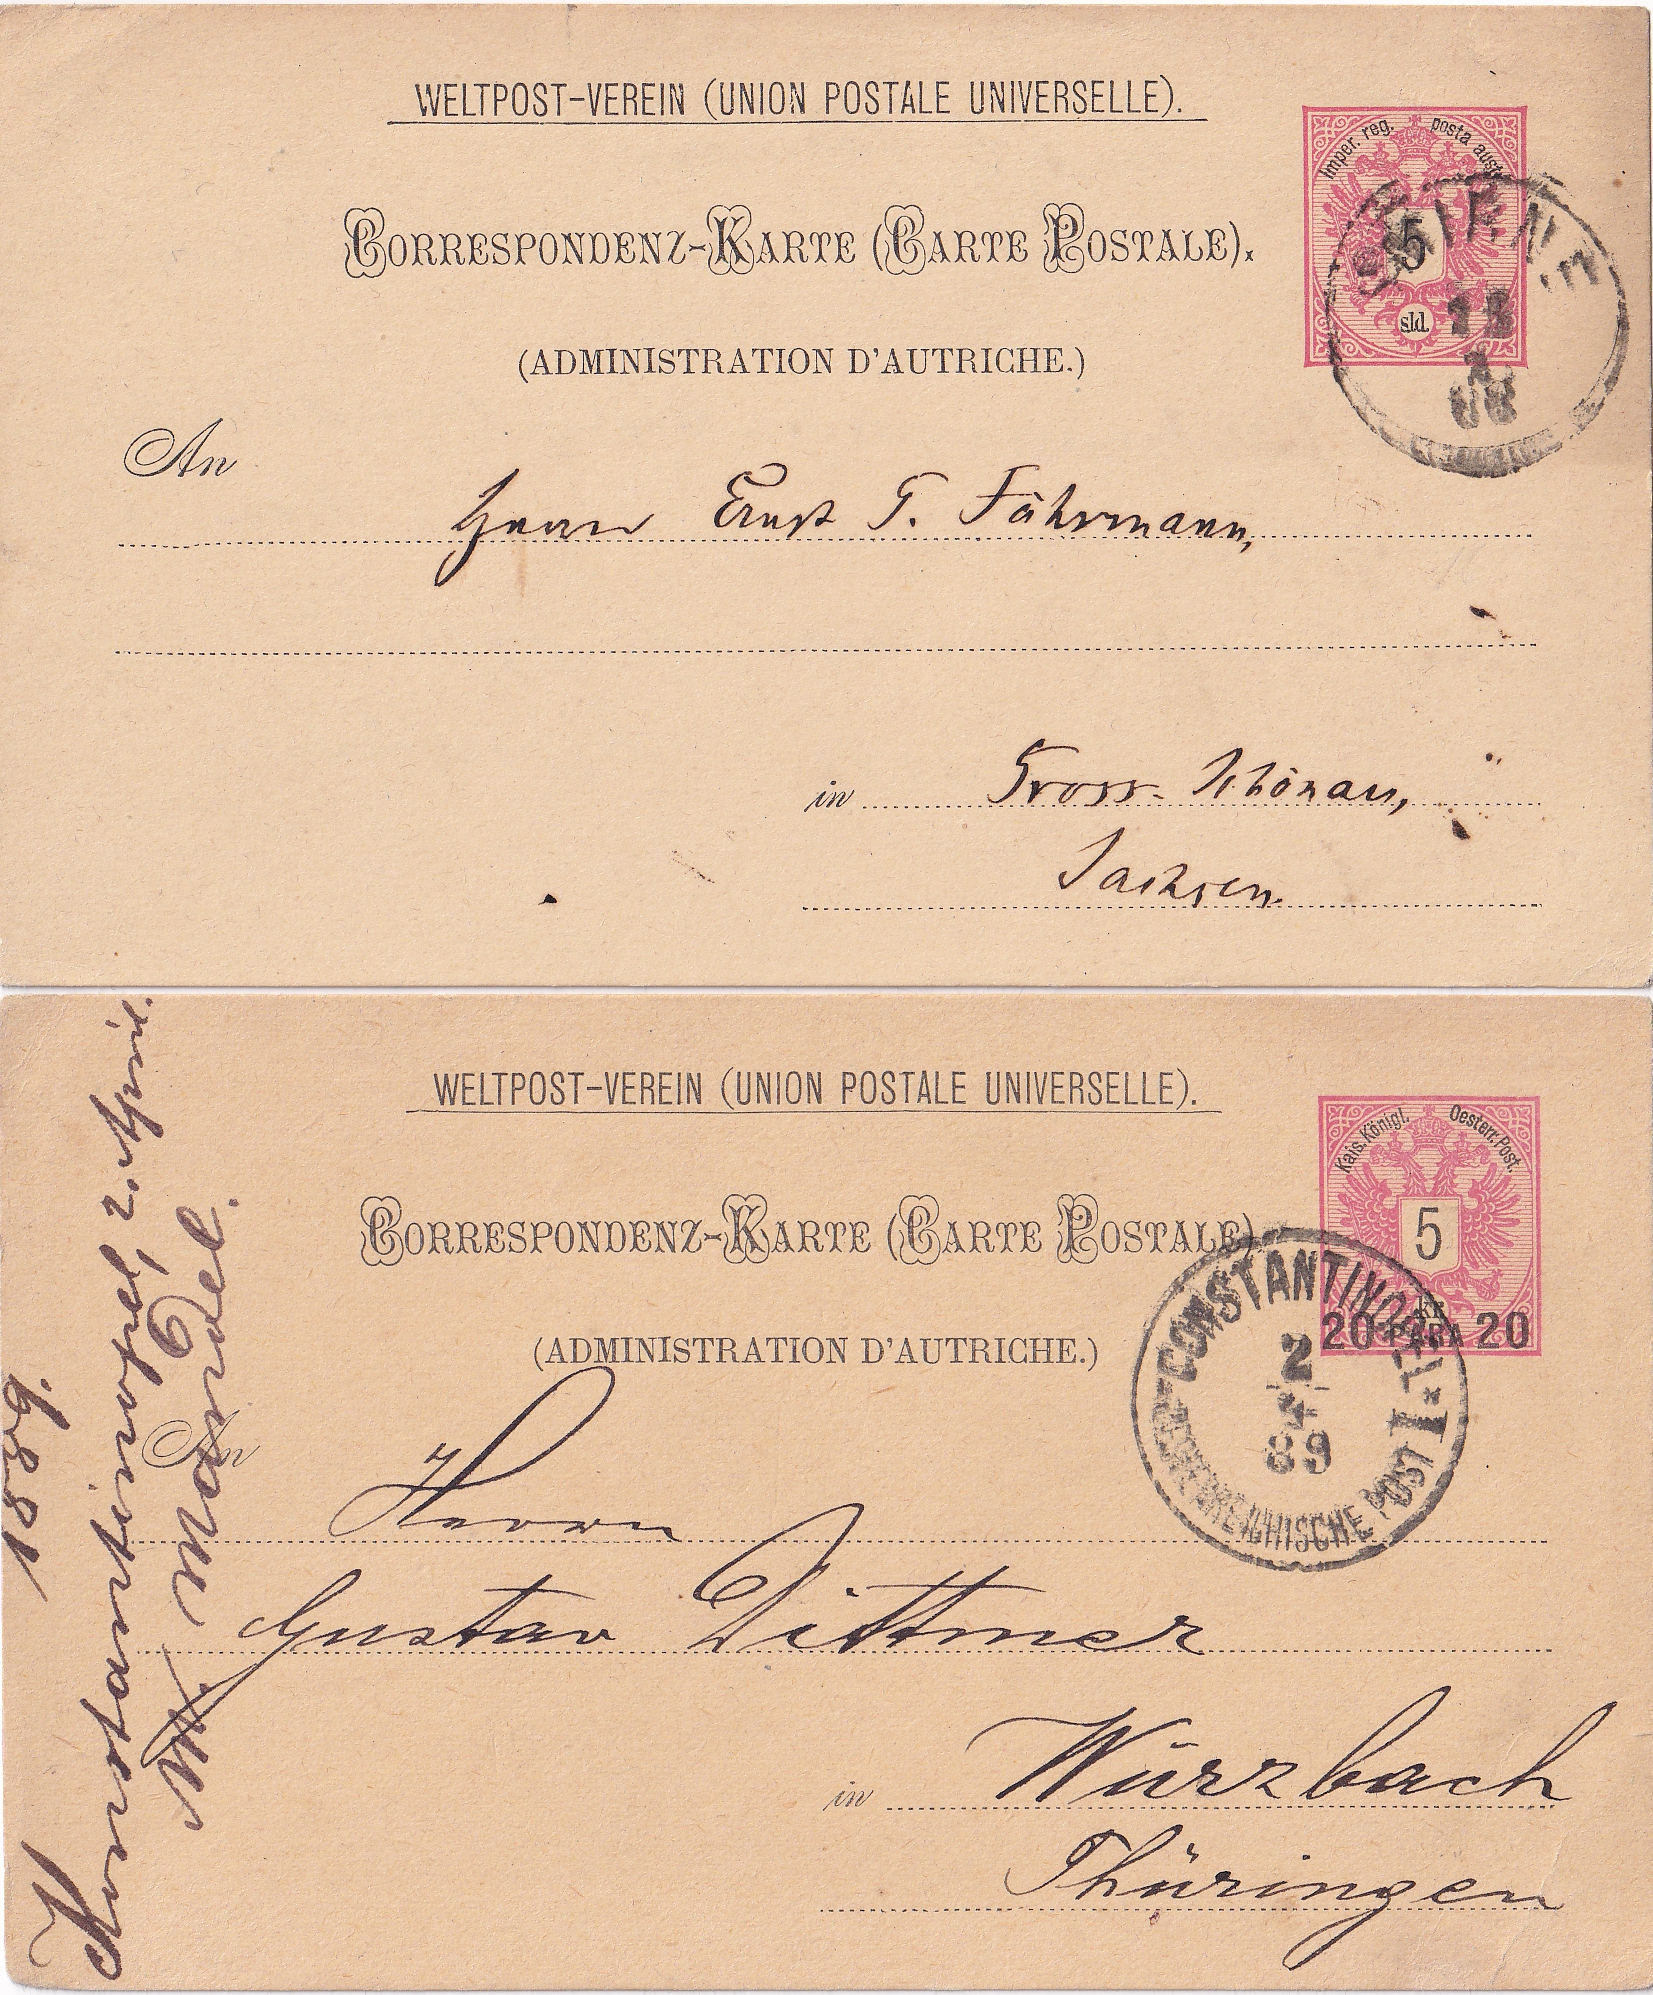 WELTPOST-VEREIN (UNION POSTALE UNIVERSELLE).
Imper. reg. posta austr.
CORRESPONDENZ-KARTE (CARTE POSTALE).
5
sld.
(ADMINISTRATION D'AUTRICHE.)
An
Herrn Ernst T. Fährmann,
in Gross-Schönau,
Sachsen.
WELTPOST-VEREIN (UNION POSTALE UNIVERSELLE).
Kais. Königl. Oesterr. Post.
CORRESPONDENZ-KARTE (CARTE POSTALE).
5
kr.
20 PARA 20
(ADMINISTRATION D'AUTRICHE.)
CONSTANTINOPEL I
2
4
89
OESTERREICHISCHE POST
An
Herrn
Gustav Dittmer
in Würzbach
Thüringen
1889.
Konstantinopel, 2. April.
M. Mandel.